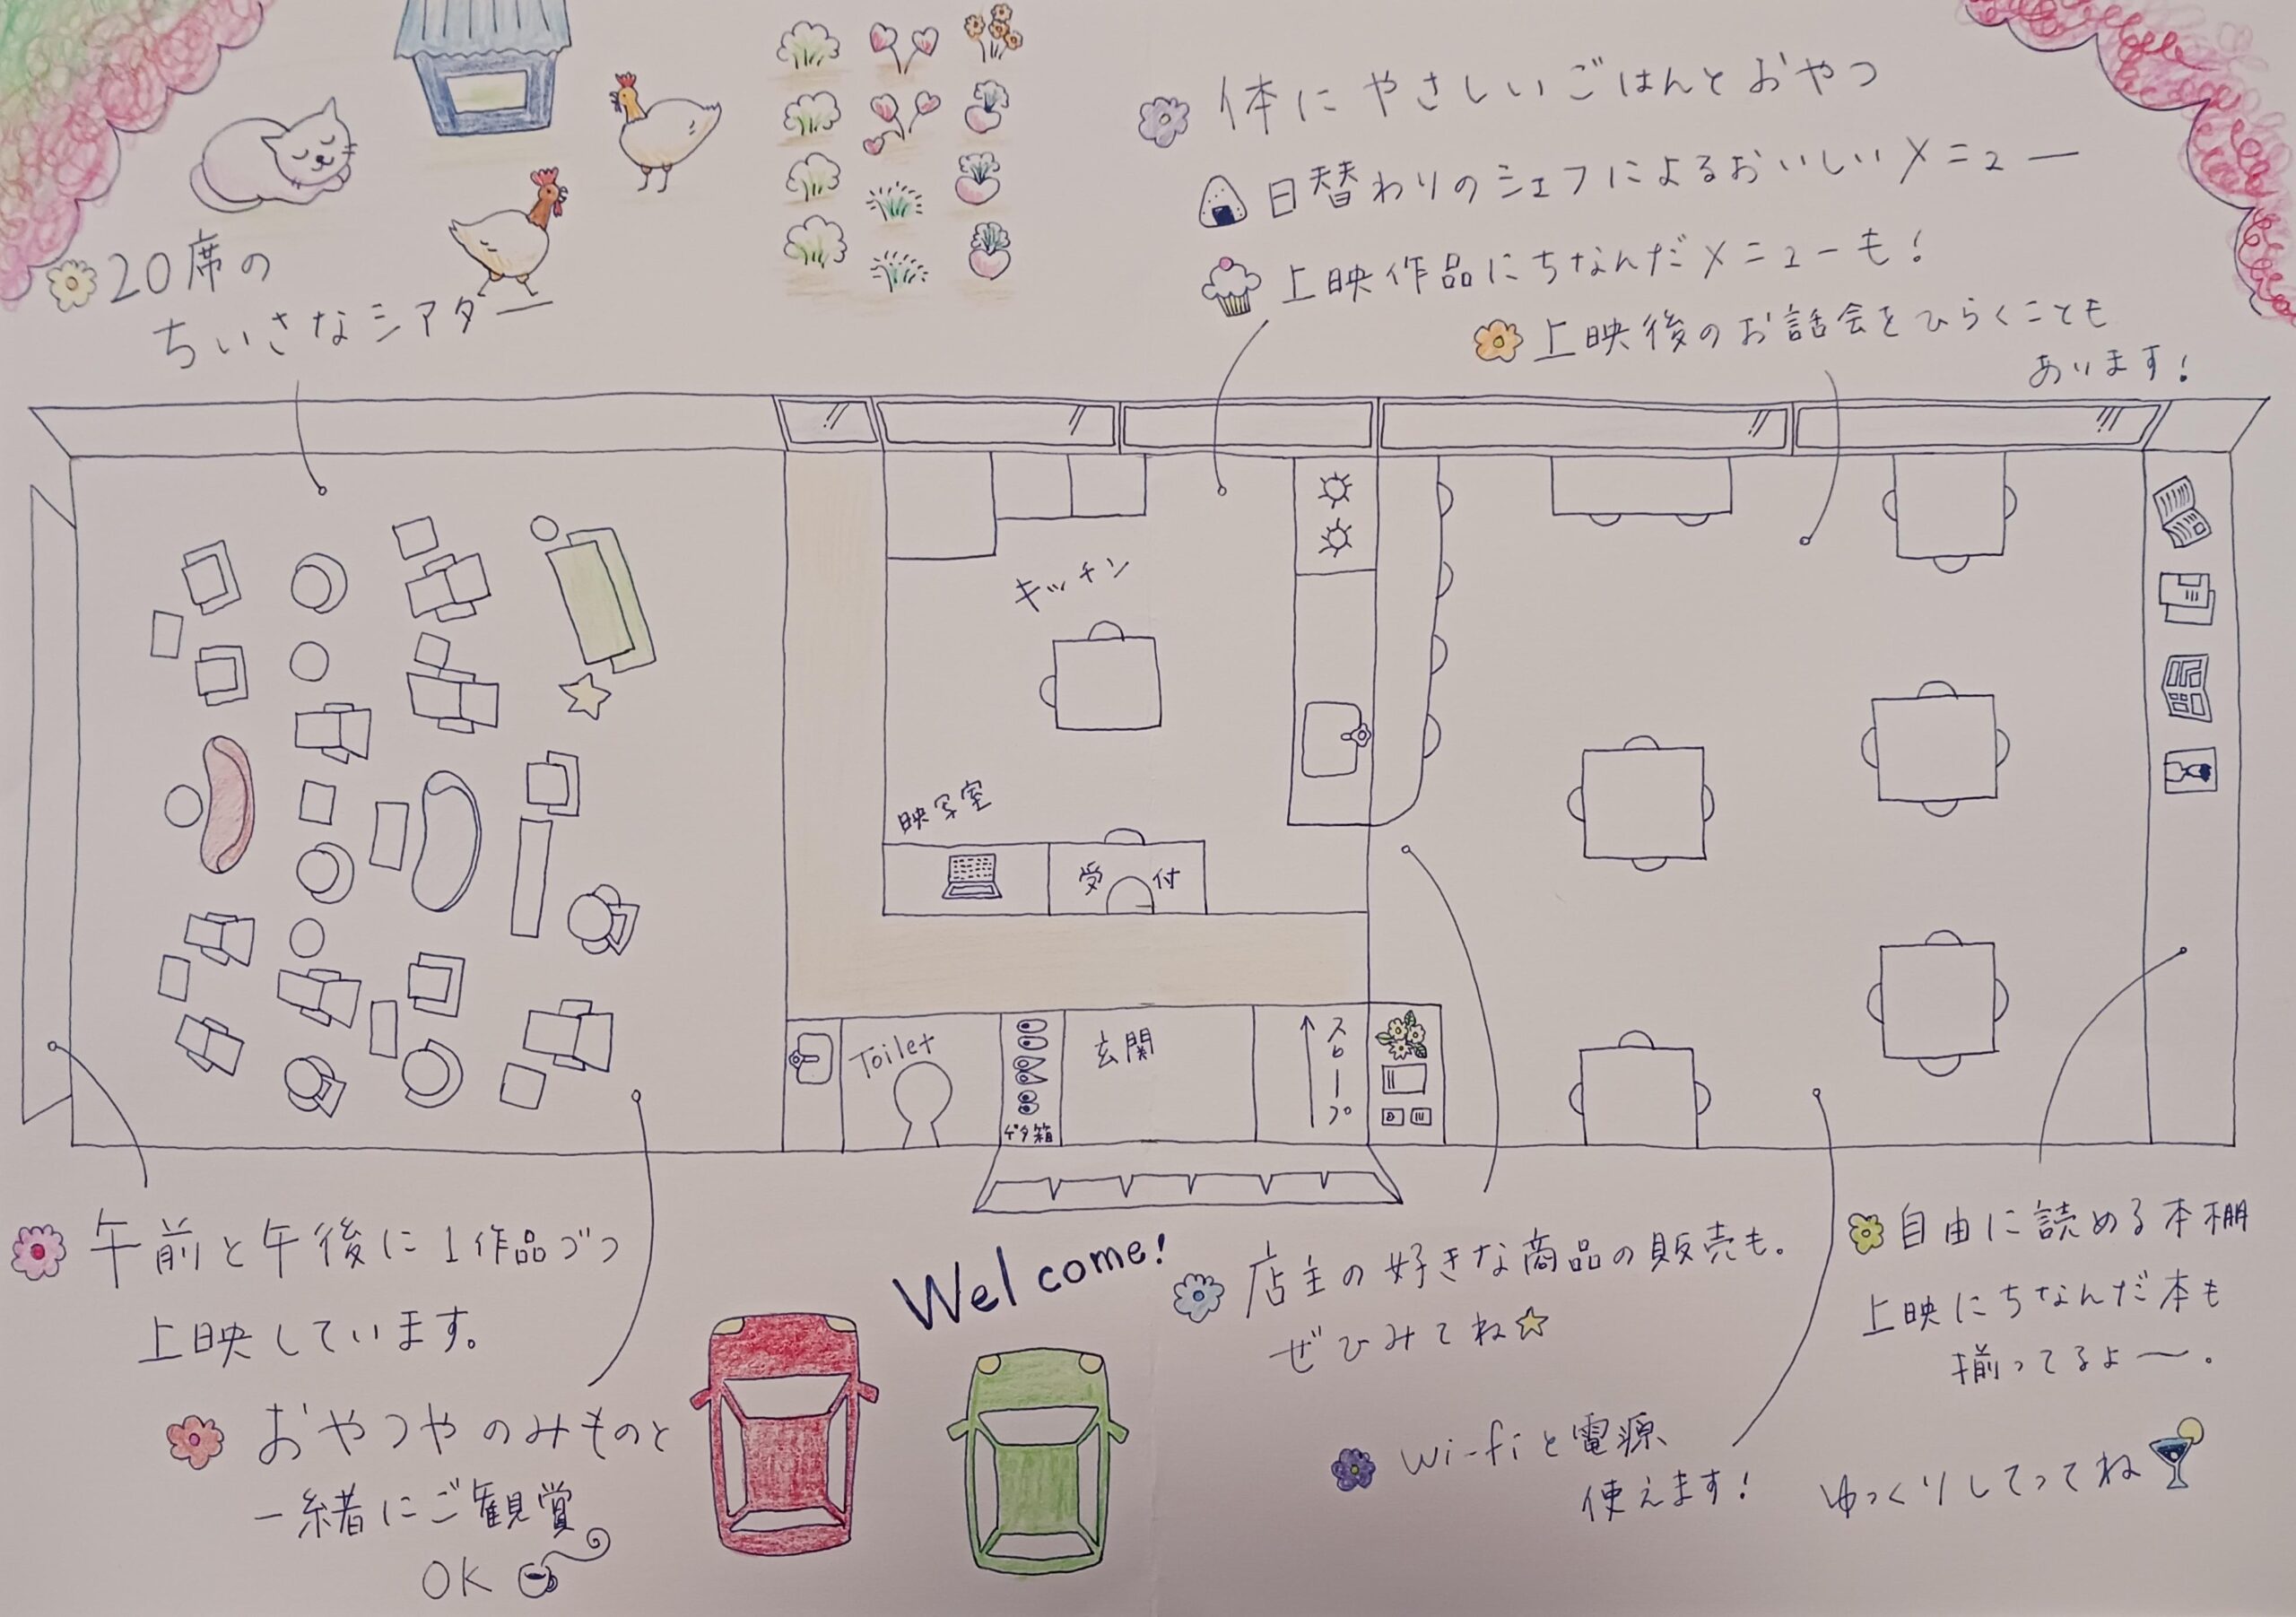 体にやさしいごはんとおやつ
日替わりのシェフによるおいしいメニュー
上映作品にちなんだメニューも!
上映後のお話会をひらくことも
あります!
20席の
ちいさなシアター
キッチン
映写室
受付
Toilet
ゲタ箱
玄関
スロープ
午前と午後に1作品づつ
上映しています。
おやつやのみものと
一緒にご観賞
OK
Welcome!
店主の好きな商品の販売も。
ぜひみてね
wi-fiと電源
使えます!
自由に読める本棚
上映にちなんだ本も
揃ってるよ〜。
ゆっくりしてってね